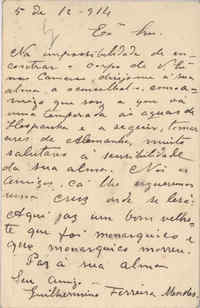 5 de 12-914
Exº Snr.
Na impossibilidade de en-
contrar o corpo de V. Exª
nas Camaras, dirijome á sua
alma, a aconselhal-a, como a-
migo que sou a que vá
uma temporada ás aguas de
Hespanha e a seguir, tomar
ares de Alemanha, muito
salutares á sensibilidade
da sua alma. Nós os
amigos, cá lhe ergueremos
uma cruz onde se lerá:
Aqui jaz um bom velho-
te que foi monarquico e
que monarquico morreu.
Paz á sua alma
Seu amigo
Guilhermino Ferreira Mendes